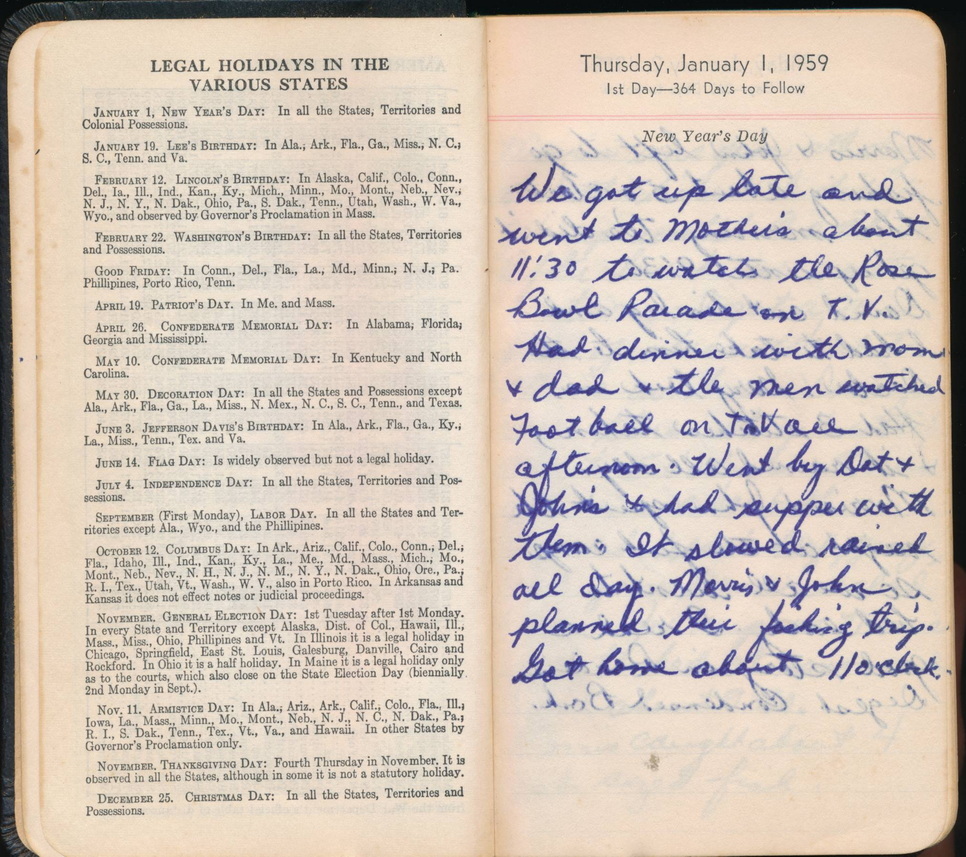 LEGAL HOLIDAYS IN THE
VARIOUS STATES
JANUARY 1, NEW YEAR'S DAY: In all the States, Territories and
Colonial Possessions.
JANUARY 19. LEE'S BIRTHDAY: In Ala.; Ark., Fla., Ga., Miss.; N. C.;
S. C., Tenn. and Va.
FEBRUARY 12. LINCOLN'S BIRTHDAY: In Alaska, Calif., Colo., Conn.,
Del., Ia., Ill., Ind., Kan., Ky., Mich., Minn., Mo., Mont., Neb., Nev.,
N. J., N. Y., N. Dak., Ohio, Pa., S. Dak., Tenn., Utah, Wash., W. Va.,
Wyo., and observed by Governor's Proclamation in Mass.
FEBRUARY 22. WASHINGTON'S BIRTHDAY: In all the States, Territories
and Possessions.
GOOD FRIDAY: In Conn., Del., Fla., La., Md., Minn.; N. J.; Pa.
Phillipines, Porto Rico, Tenn.
APRIL 19. PATRIOT'S DAY. In Me. and Mass.
APRIL 26. CONFEDERATE MEMORIAL DAY: In Alabama; Florida;
Georgia and Mississippi.
MAY 10. CONFEDERATE MEMORIAL DAY: In Kentucky and North
Carolina.
MAY 30. DECORATION DAY: In all the States and Possessions except
Ala., Ark., Fla., Ga., La., Miss., N. Mex., N. C., S. C., Tenn., and Texas.
JUNE 3. JEFFERSON DAVIS'S BIRTHDAY: In Ala., Ark., Fla., Ga., Ky.;
La., Miss., Tenn., Tex. and Va.
JUNE 14. FLAG DAY: Is widely observed but not a legal holiday.
JULY 4. INDEPENDENCE DAY: In all the States, Territories and Pos-
sessions.
SEPTEMBER (First Monday), LABOR DAY. In all the States and Ter-
ritories except Ala., Wyo., and the Phillipines.
OCTOBER 12. COLUMBUS DAY: In Ark., Ariz., Calif., Colo., Conn.; Del.;
Fla., Idaho, Ill., Ind., Kan., Ky., La., Me., Md., Mass., Mich., Mo.,
Mont., Neb., Nev., N. H., N. J., N. M., N. Y., N. Dak., Ohio, Ore., Pa.;
R. I., Tex., Utah, Vt., Wash., W. V., also in Porto Rico. In Arkansas and
Kansas it does not effect notes or judicial proceedings.
NOVEMBER. GENERAL ELECTION DAY: 1st Tuesday after 1st Monday.
In every State and Territory except Alaska, Dist. of Col., Hawaii, Ill.,
Mass., Miss., Ohio, Phillipines and Vt. In Illinois it is a legal holiday in
Chicago, Springfield, East St. Louis, Galesburg, Danville, Cairo and
Rockford. In Ohio it is a half holiday. In Maine it is a legal holiday only
as to the courts, which also close on the State Election Day (biennially
2nd Monday in Sept.).
NOV. 11. ARMISTICE DAY: In Ala.; Ariz., Ark., Calif., Colo., Fla., Ill.;
Iowa, La., Mass., Minn., Mo., Mont., Neb., N. J., N. C., N. Dak., Pa.;
R. I., S. Dak., Tenn., Tex., Vt., Va., and Hawaii. In other States by
Governor's Proclamation only.
NOVEMBER. THANKSGIVING DAY: Fourth Thursday in November. It is
observed in all the States, although in some it is not a statutory holiday.
DECEMBER 25. CHRISTMAS DAY: In all the States, Territories and
Possessions.
Thursday, January 1, 1959
1st Day—364 Days to Follow
New Year's Day
We got up late and
went to Mother's about
11:30 to watch the Rose
Bowl Parade on T.V.
Had dinner with mom
& dad & the men watched
Football on T.V. all
afternoon. Went by Dot &
John's & had supper with
them. It slowed rained
all Day. Morris & John
planned their fishing trip.
Got home about 11 o'clock.